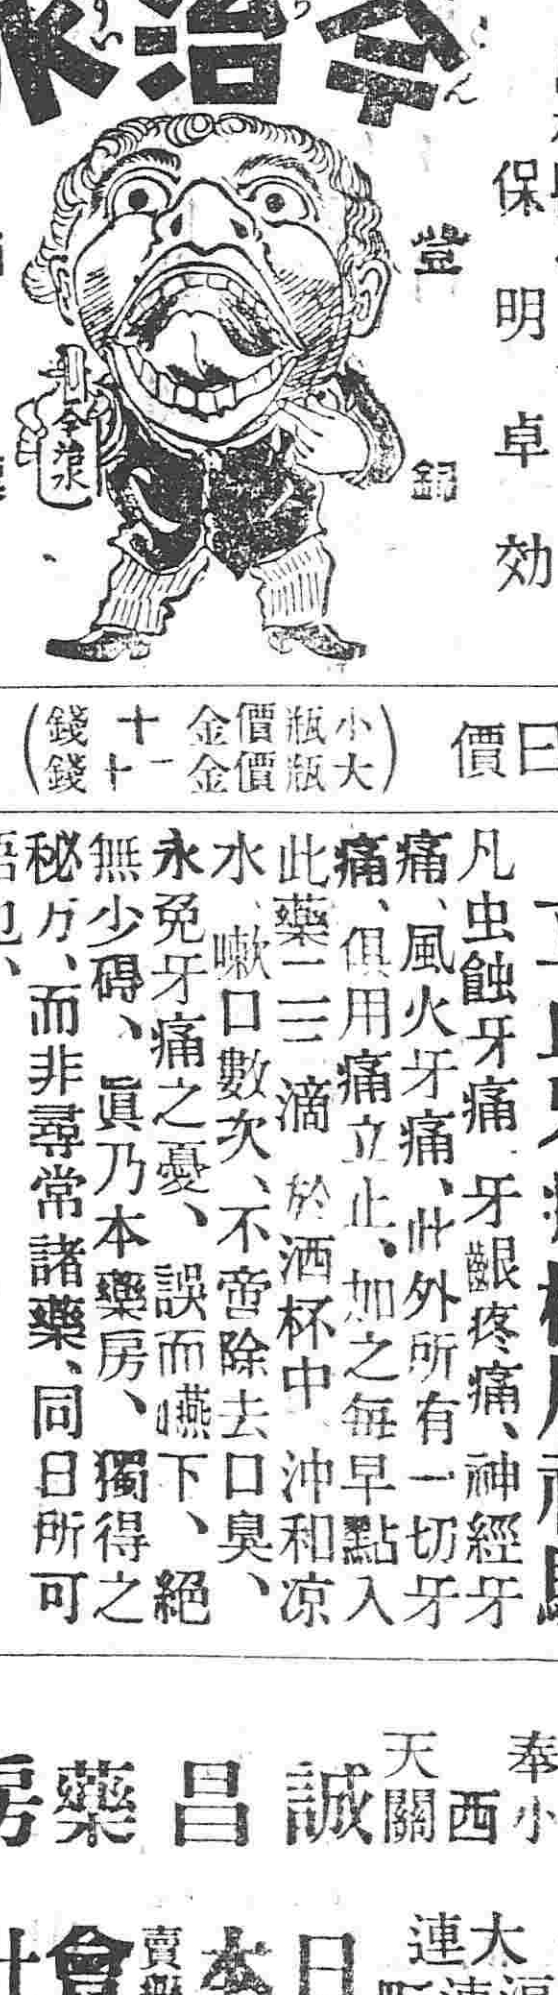 今治水
登錄
保明卓効
今治水
定價
(小瓶價金十錢
大瓶價金二十錢)
凡虫蝕牙痛、牙齦疼痛、神經牙
痛、風火牙痛、此外所有一切牙
痛、俱用痛立止、如之每早點入
此藥二三滴 於酒杯中 沖和凉
水、嗽口數次、不啻除去口臭、
永免牙痛之憂、誤而嚥下、絕
無少碍、眞乃本藥房、獨得之
秘方、而非尋常諸藥、同日所可
語也、
奉天小西關
誠昌藥房
大連
日本賣藥會社